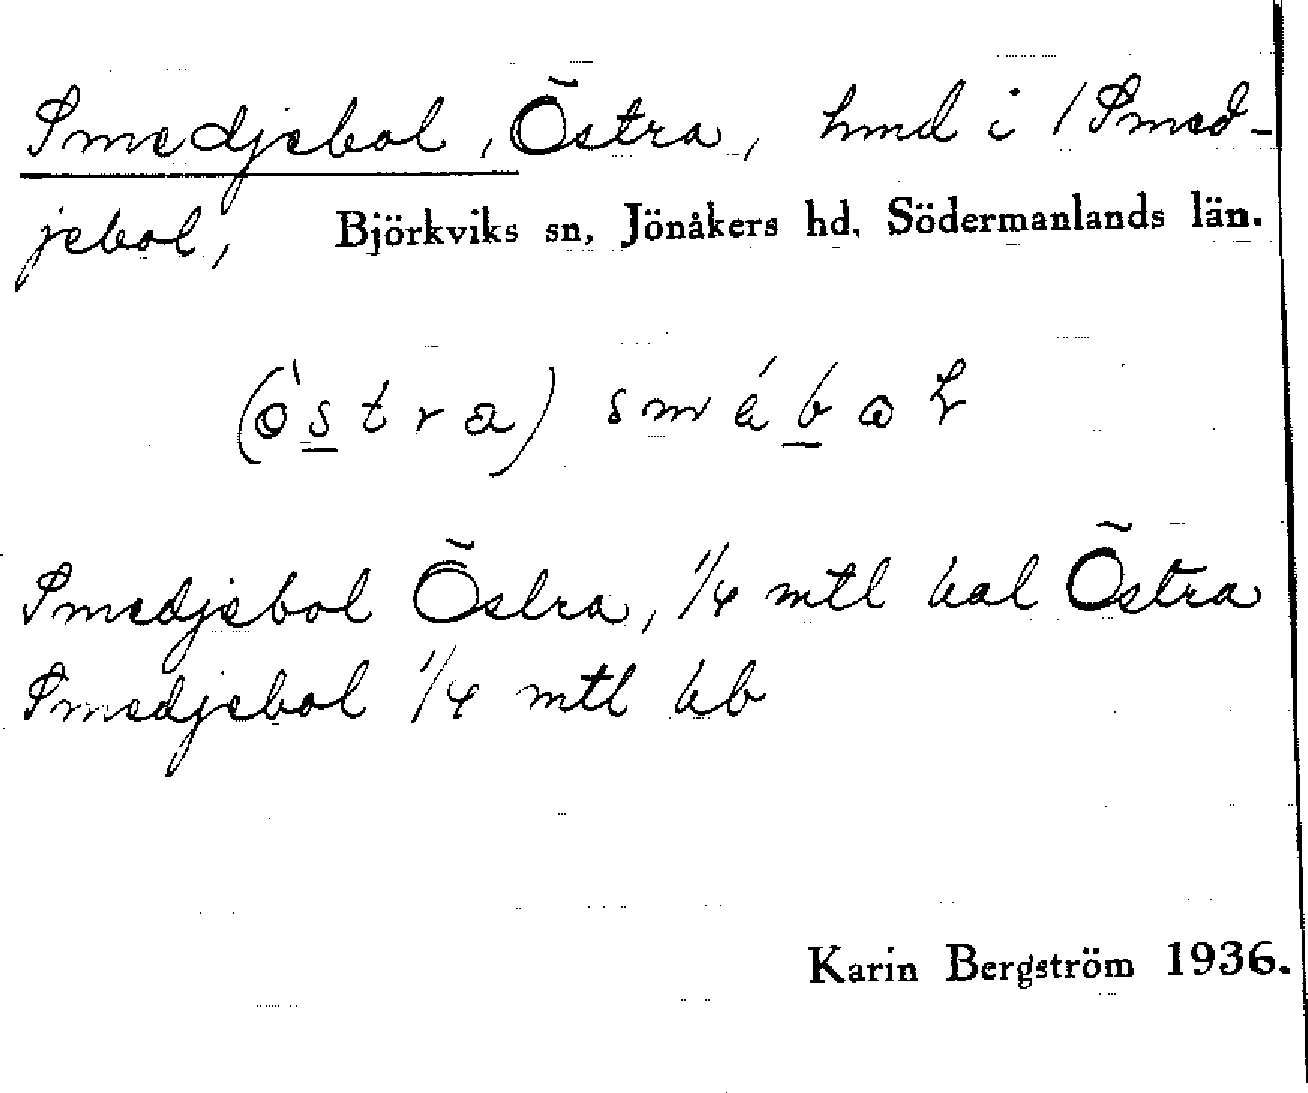 Smedjebol, Östra, hmd i /Smed-
jebol, Björkviks sn, Jönåkers hd, Södermanlands län.
Smedjebol Östra, 1/4 mtl kal Östra
Smedjebol 1/4 mtl kb
Karin Bergström 1936.